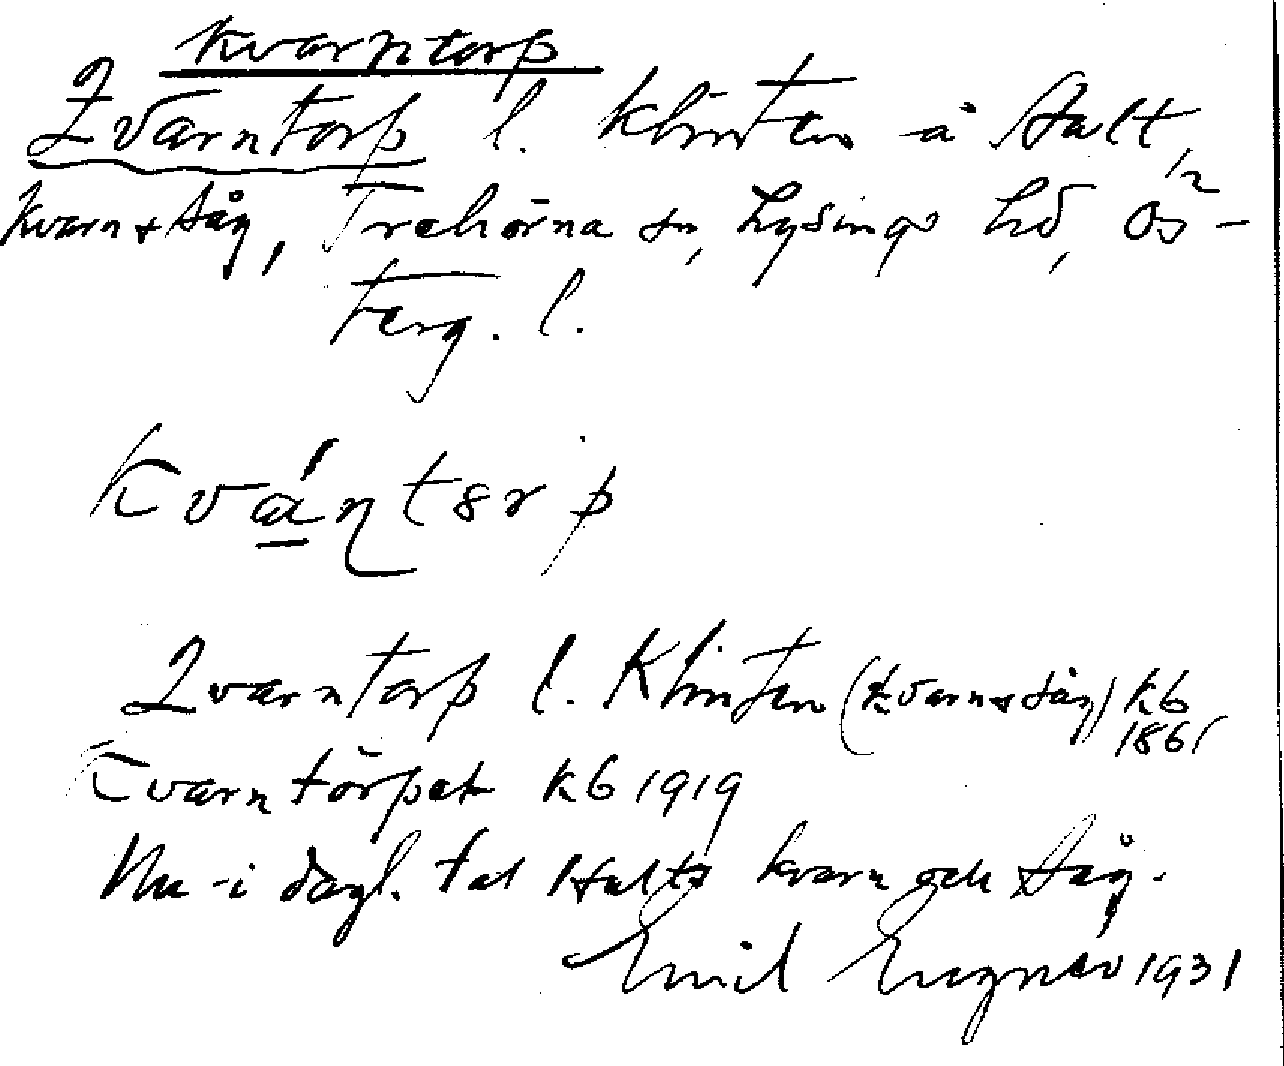 Kvarntorp
Qvarntorp l. Klinten å Hult 1/2
kvarn & såg, Trehörna sn, Lysings hd, Ös-
terg. l.
Kvarntorp
Qvarntorp l. Klinten (kvarn & såg) kb
1861
Qvarntorpet kb 1919
Nu i dagl. tal Hults kvarn och såg.
Emil 1931